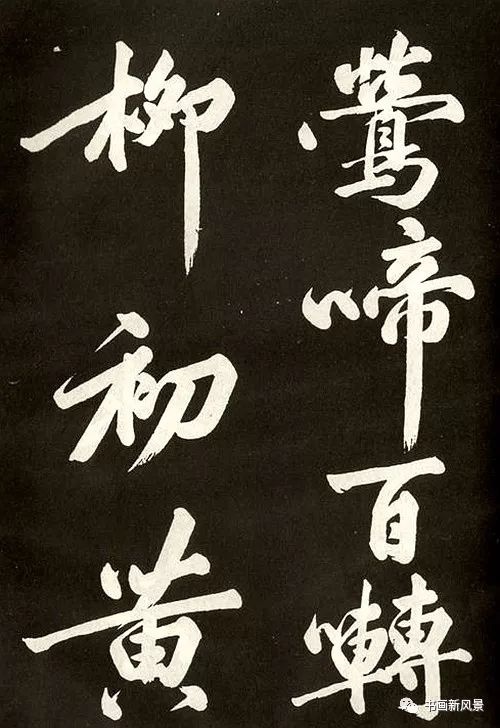 鶯啼百囀
柳初黄
书画新风景